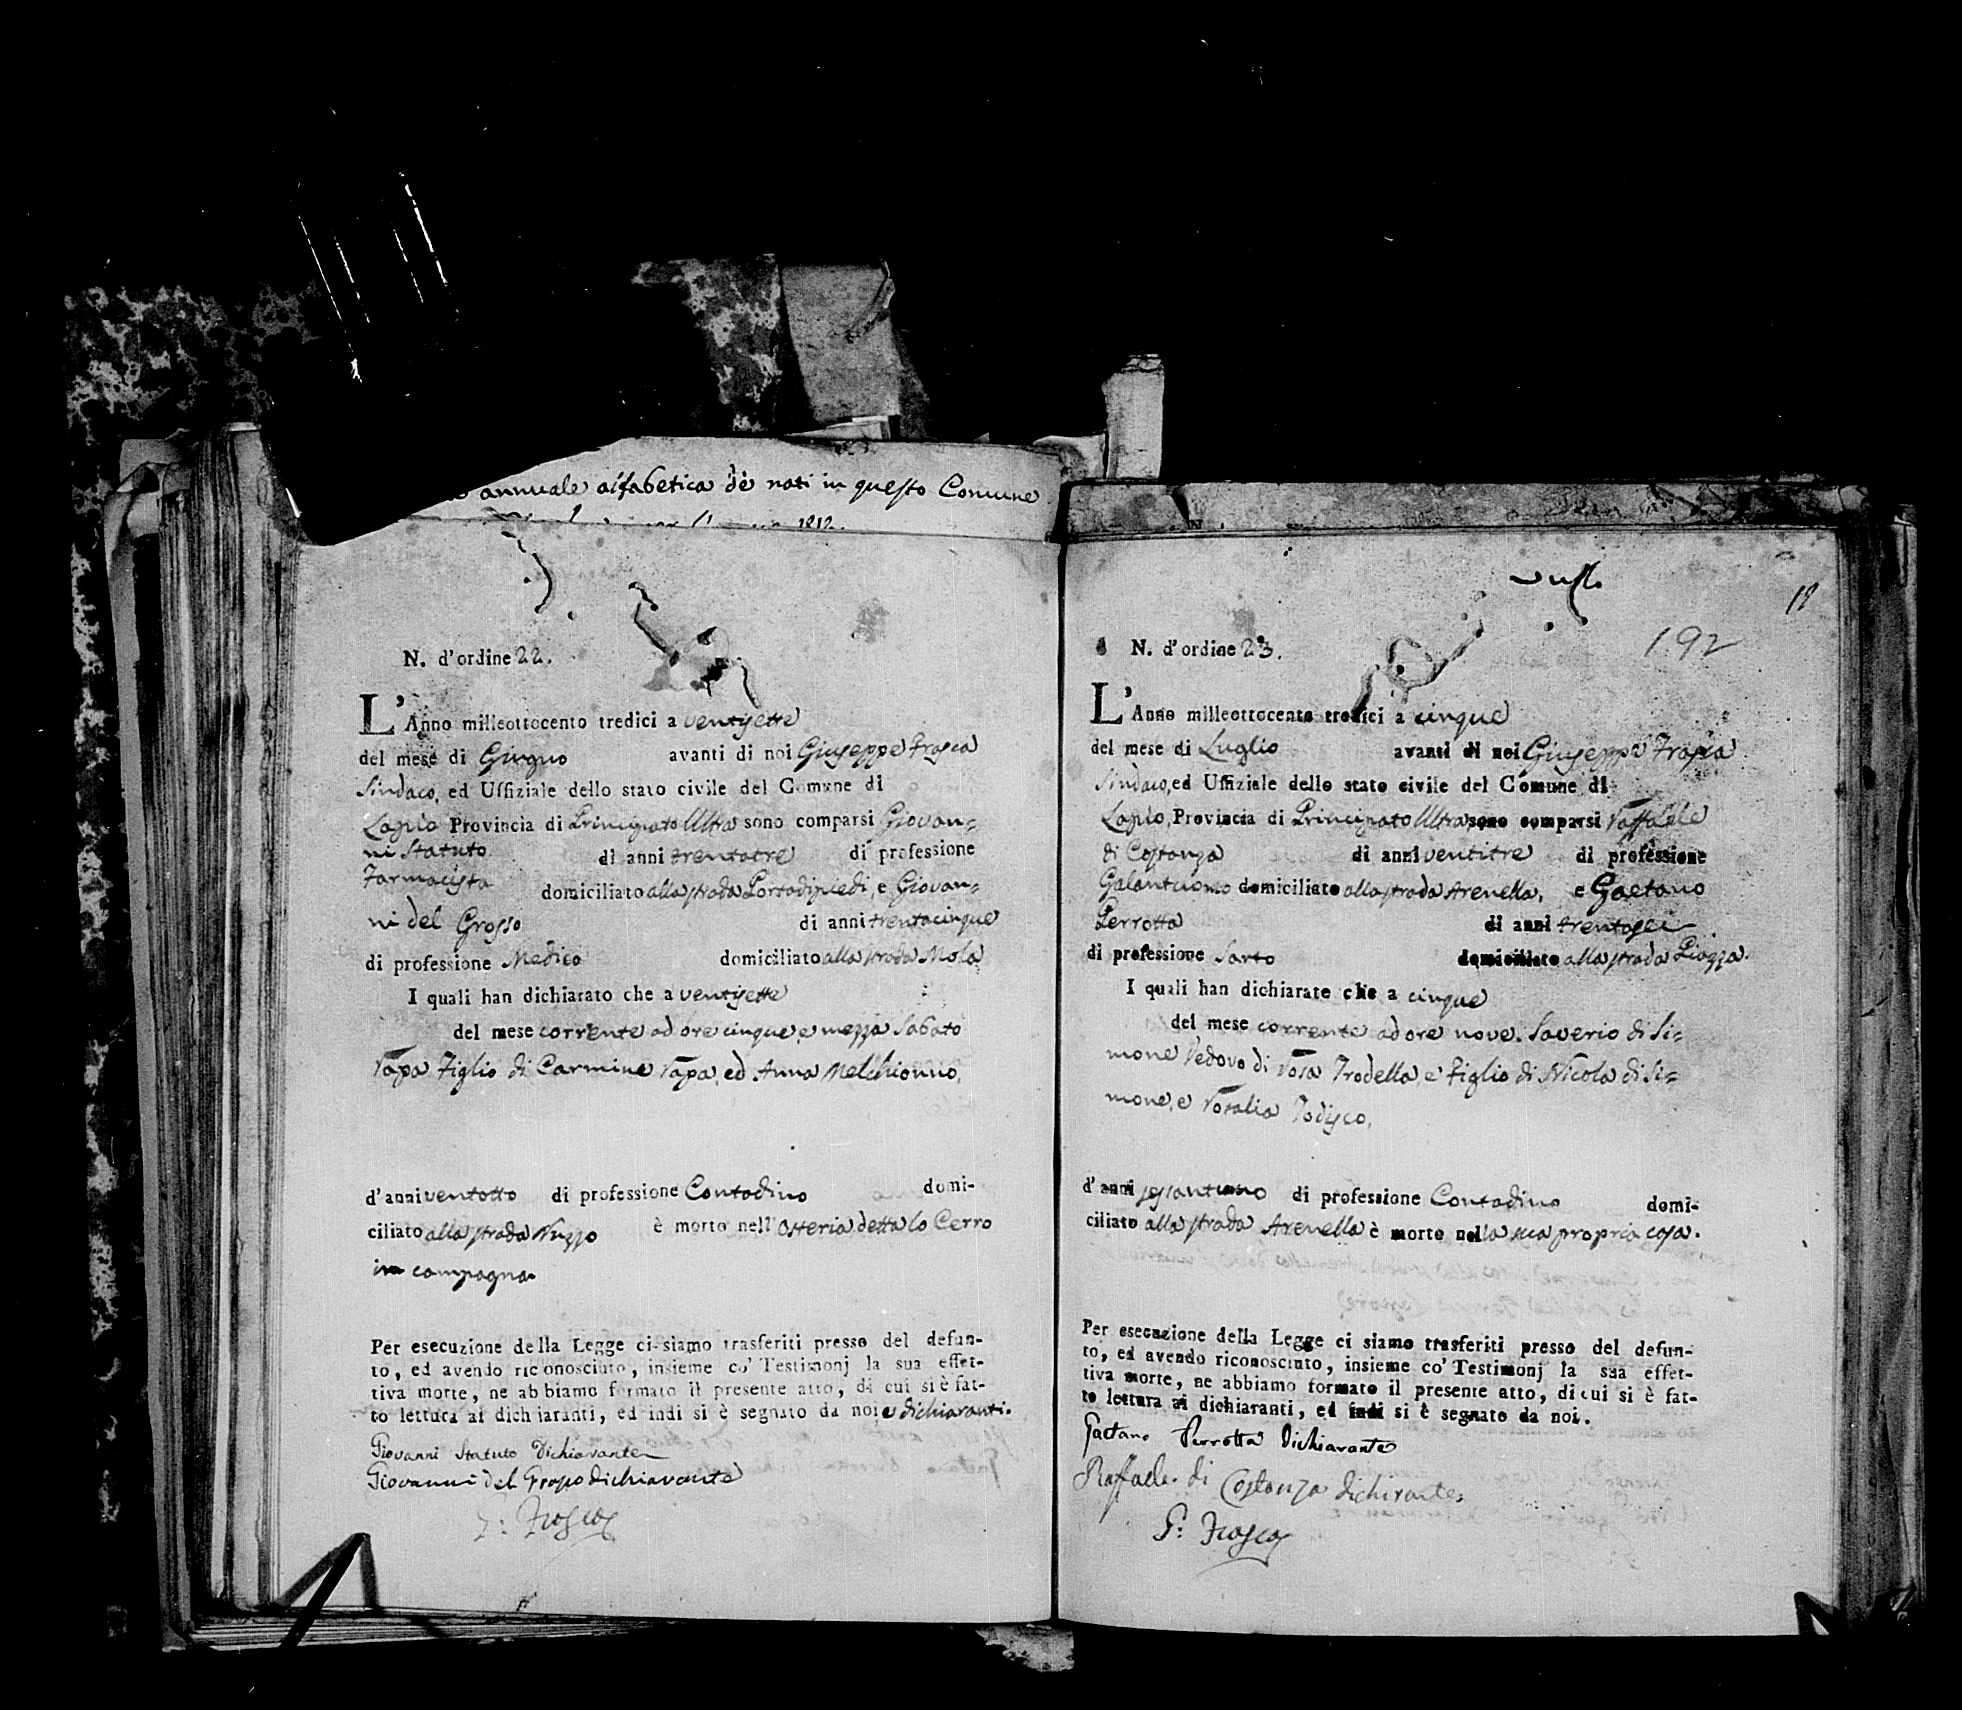 annuale alfabetica de nati in questo Comune
1812.
N. d'ordine 22.
L'Anno milleottocento tredici a ventisette
del mese di Giugno avanti di noi Giuseppe Frasca
Sindaco, ed Uffiziale dello stato civile del Comune di
Lapio Provincia di Principato Ultra sono comparsi Giovan=
ni Statuto di anni trentatre di professione
Farmacista domiciliato alla strada Portadipiedi, e Giovan=
ni del Grosso di anni trentacinque
di professione Medico domiciliato alla strada Mola
I quali han dichiarato che a ventisette
del mese corrente ad ore cinque, e mezza Sabato
Papa Figlio di Carmine Papa, ed Anna Melchionno,
d'anni ventotto di professione Contadino domi-
ciliato alla strada Nuzzo è morto nell'Osteria detta lo Cerro
in campagna.
Per esecuzione della Legge ci siamo trasferiti presso del defun-
to, ed avendo riconosciuto, insieme co' Testimonj la sua effet-
tiva morte, ne abbiamo formato il presente atto, di cui si è fat-
to lettura ai dichiaranti, ed indi si è segnato da noi e dichiaranti.
Giovanni Statuto Dichiarante
Giovanni del Grosso dichiarante
G: Frasca
18
192
N. d'ordine 23.
L'Anno milleottocento tredici a cinque
del mese di Luglio avanti di noi Giuseppe Frasca
Sindaco, ed Uffiziale dello stato civile del Comune di
Lapio, Provincia di Principato Ultra sono comparsi Raffaele
di Costanza di anni ventitre di professione
Galantuomo domiciliato alla strada Arenella, e Gaetano
Perrotta di anni trentasei
di professione Sarto domiciliato alla strada Piazza.
I quali han dichiarate che a cinque
del mese corrente ad ore nove. Saverio di Si=
mone Vedovo di Rosa Trodella, e Figlio di Nicola di Si=
mone, e Rosalia Todisco,
d'anni sessantuno di professione Contadino domi-
ciliato alla strada Arenella è morto nella sua propria casa.
Per esecuzione della Legge ci siamo trasferiti presso del defun-
to, ed avendo riconosciuto, insieme co' Testimonj la sua effet-
tiva morte, ne abbiamo formato il presente atto, di cui si è fat-
to lettura ai dichiaranti, ed indi si è segnato da noi.
Gaetano Perrotta Dichiarante
Raffaele di Costanza dichirante
G: Frasca